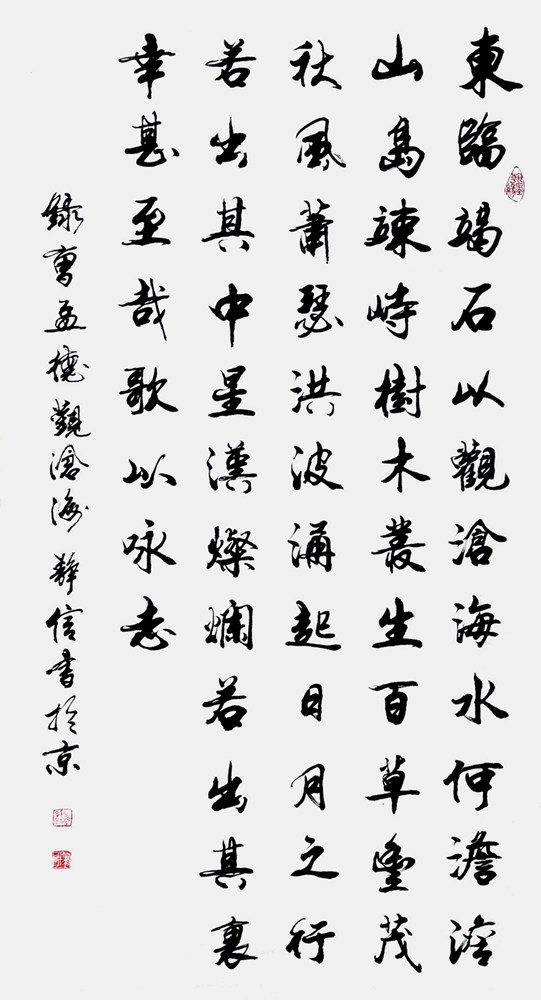 東臨竭石以觀滄海水何澹澹
山島竦峙樹木叢生百草豐茂
秋風蕭瑟洪波涌起日月之行
若出其中星漢燦爛若出其裏
幸甚至哉歌以咏志
錄曹孟德觀滄海靜信書於京